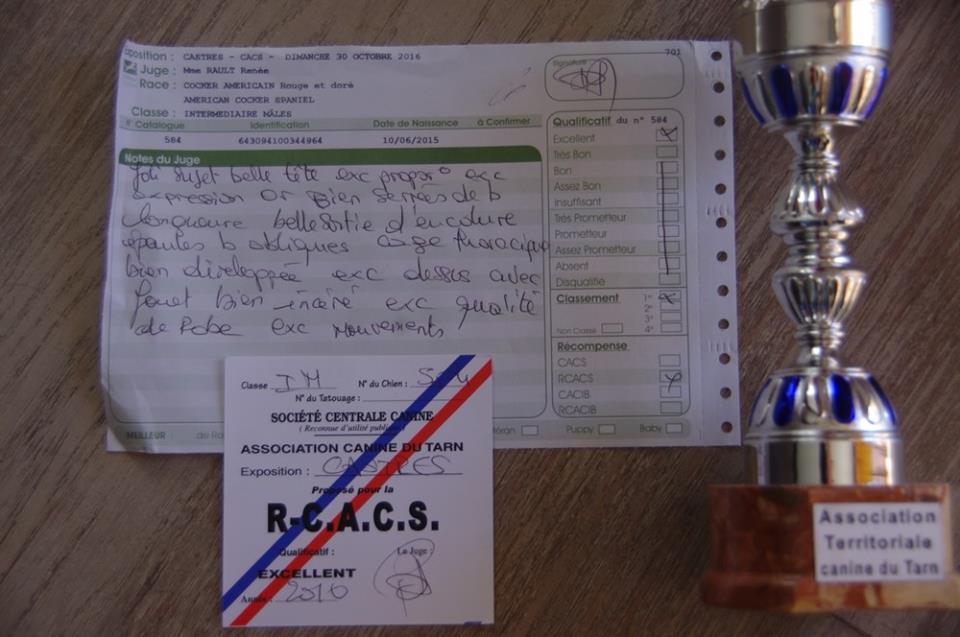 701
Exposition : CASTRES - CACS - DIMANCHE 30 OCTOBRE 2016
Juge : Mme RAULT Renée
Race : COCKER AMERICAIN Rouge et doré
AMERICAN COCKER SPANIEL
Classe : INTERMEDIAIRE MÂLES
N° Catalogue Identification Date de Naissance à Confirmer
584 643094100344964 10/06/2015
Notes du Juge
Joli sujet belle tête exc propor° exc
expression or bien serrées de b
longueure belle sortie d'encolure
épaules b obliques cage thoracique
bien développée exc dessus avec
fouet bien inséré exc qualité
de Robe exc mouvements
Signature
Qualificatif du n° 584
Excellent
Très Bon
Bon
Assez Bon
Insuffisant
Très Prometteur
Prometteur
Assez Prometteur
Absent
Disqualifié
Classement 1°
2°
3°
Non Classé 4°
Récompense
CACS
RCACS
CACIB
RCACIB
MEILLEUR : de Puppy Baby
Classe : IM N° du Chien : 584
N° du Tatouage :
SOCIÉTÉ CENTRALE CANINE
( Reconnue d'utilité publique )
ASSOCIATION CANINE DU TARN
Exposition : CASTRES
Proposé pour la
R-C.A.C.S.
Qualificatif : Le Juge :
EXCELLENT
Année : 2016
Association
Territoriale
canine du Tarn